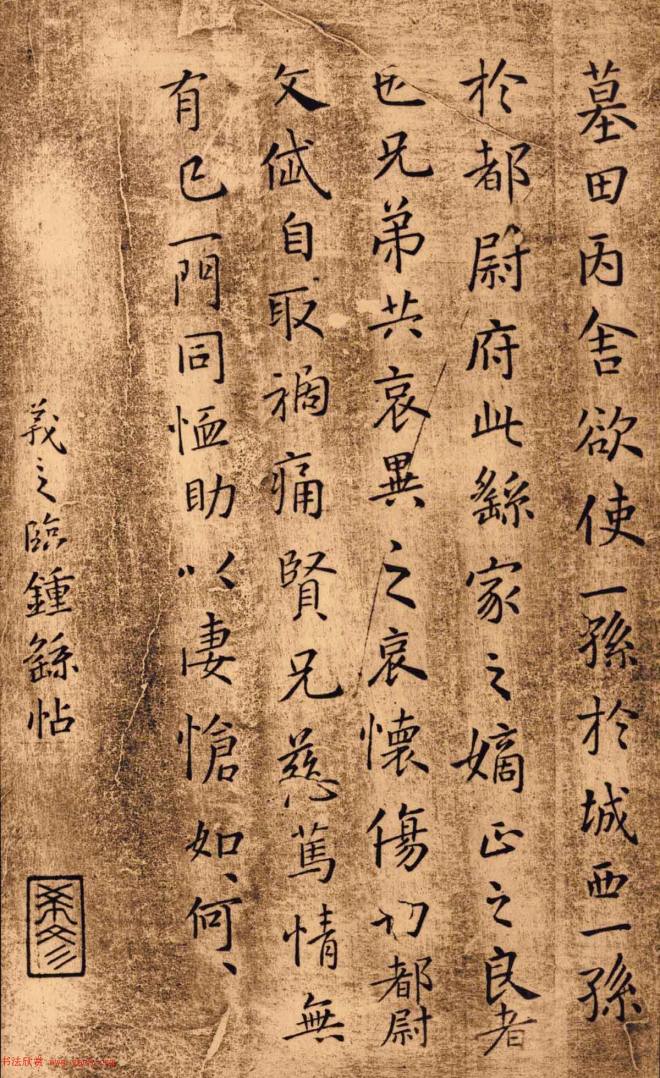 墓田丙舍欲使一孫於城西一孫
於都尉府此繇家之嫡正之良者
也兄弟共哀異之哀懷傷切都尉
文岱自取禍痛賢兄慈篤情無
有已一門同恤助以悽愴如、何、
羲之臨鍾繇帖
书法欣赏